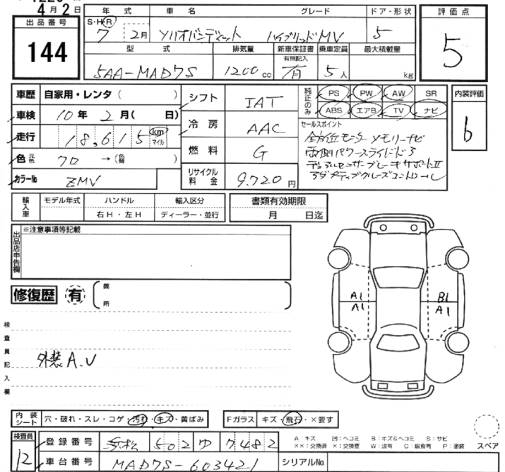 4月2日
出品番号 年式 車名 グレード ドア・形状 評価点
144
S・H・R 7 2月 ソリオバンディット ハイブリッドMV 5
5
型式 排気量 新車保証書 乗車定員 最大積載量
有無記入
5AA-MAD7S 1200cc 有 5人 kg
車歴 自家用・レンタ( )
シフト IAT
純正のみ PS PW AW SR
ABS エアB TV ナビ
内装評価
b
車検 10年2月( 日)
冷房 AAC
セールスポイント
全方位モニター メモリーナビ
両側パワースライドドア
デュアルセンサーブレーキサポートII
アダプティブクルーズコントロール
走行 18,615 km マイル
燃料 G
色 元 70 →(替 )
リサイクル料金 9.720円
カラーNo ZMV
輸入車 モデル年式 ハンドル 輸入区分
右H・左H ディーラー・並行
書類有効期限
月 日迄
出品店申告欄 ※注意事項等記載
修復歴 有 箇所
検査員記入欄
外装A.U
A1 A1
B1 A1
内装シート 穴・破れ・スレ・コゲ・汚れ・キズ・黄ばみ
Fガラス キズ・飛石・×要す
検査員 12
登録番号 502 ゆ 7482
車台番号 MAD7S-603421
シリアルNo.
A キズ 凹:ヘコミ B:キズ&ヘコミ S:サビ
××:交換済 ×:交換要 W:波有 C:腐食有 P:塗装
スペア